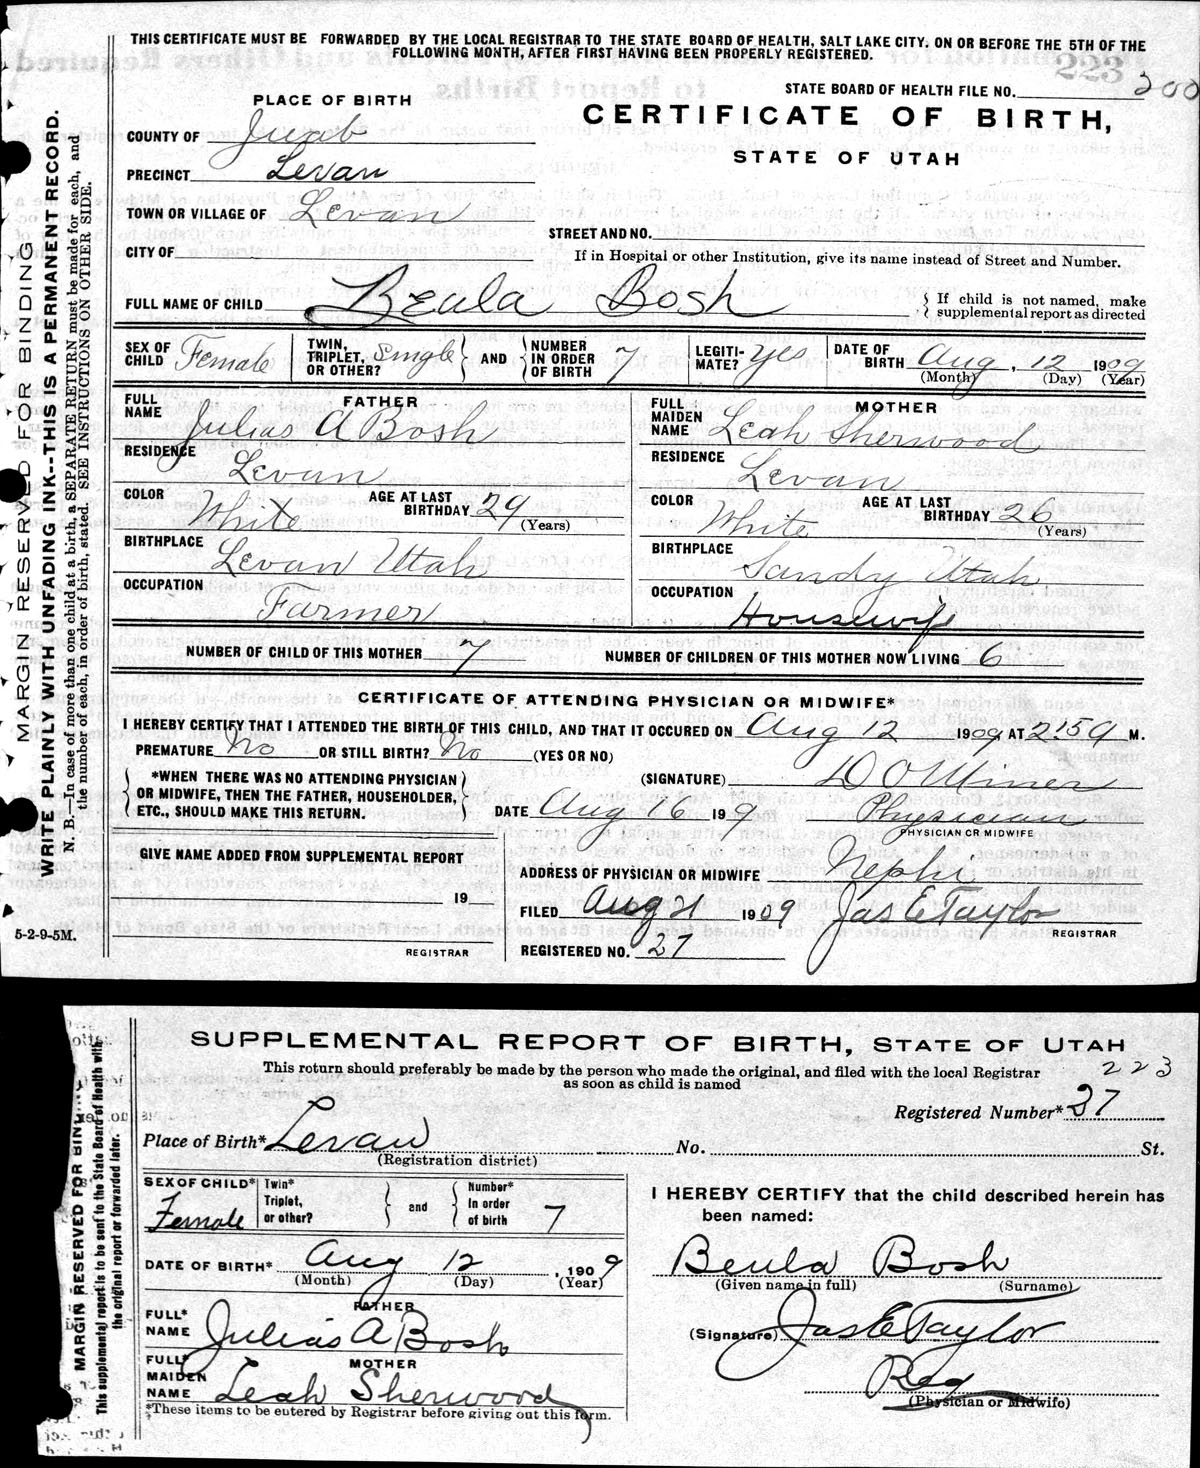 THIS CERTIFICATE MUST BE FORWARDED BY THE LOCAL REGISTRAR TO THE STATE BOARD OF HEALTH, SALT LAKE CITY. ON OR BEFORE THE 5TH OF THE
FOLLOWING MONTH, AFTER FIRST HAVING BEEN PROPERLY REGISTERED.
223
STATE BOARD OF HEALTH FILE NO. 200
PLACE OF BIRTH
CERTIFICATE OF BIRTH,
STATE OF UTAH
COUNTY OF Juab
PRECINCT Levan
TOWN OR VILLAGE OF Levan
STREET AND NO.
CITY OF
If in Hospital or other Institution, give its name instead of Street and Number.
FULL NAME OF CHILD Beula Bosh
} If child is not named, make
supplemental report as directed
SEX OF CHILD Female
TWIN, TRIPLET, OR OTHER? Single } AND { NUMBER IN ORDER OF BIRTH 7
LEGITI-MATE? Yes
DATE OF BIRTH Aug. 12 1909
(Month) (Day) (Year)
FATHER
FULL NAME Julias A Bosh
RESIDENCE Levan
COLOR White AGE AT LAST BIRTHDAY 29 (Years)
BIRTHPLACE Levan Utah
OCCUPATION Farmer
MOTHER
FULL MAIDEN NAME Leah Sherwood
RESIDENCE Levan
COLOR White AGE AT LAST BIRTHDAY 26 (Years)
BIRTHPLACE Sandy Utah
OCCUPATION Housewife
NUMBER OF CHILD OF THIS MOTHER 7 NUMBER OF CHILDREN OF THIS MOTHER NOW LIVING 6
CERTIFICATE OF ATTENDING PHYSICIAN OR MIDWIFE*
I HEREBY CERTIFY THAT I ATTENDED THE BIRTH OF THIS CHILD, AND THAT IT OCCURED ON Aug 12 1909 AT 2:15 a M.
PREMATURE No OR STILL BIRTH? No (YES OR NO)
{ *WHEN THERE WAS NO ATTENDING PHYSICIAN
OR MIDWIFE, THEN THE FATHER, HOUSEHOLDER,
ETC., SHOULD MAKE THIS RETURN. }
(SIGNATURE) D O Miner
DATE Aug 16 199 Physician
PHYSICIAN OR MIDWIFE
GIVE NAME ADDED FROM SUPPLEMENTAL REPORT
19
REGISTRAR
ADDRESS OF PHYSICIAN OR MIDWIFE Nephi
FILED Aug 21 1909 Jas E Taylor
REGISTRAR
REGISTERED NO. 27
MARGIN RESERVED FOR BINDING
WRITE PLAINLY WITH UNFADING INK--THIS IS A PERMANENT RECORD.
N. B.—In case of more than one child at a birth, a SEPARATE RETURN must be made for each, and
the number of each, in order of birth, stated. SEE INSTRUCTIONS ON OTHER SIDE.
5-2-9-5M.
SUPPLEMENTAL REPORT OF BIRTH, STATE OF UTAH
This return should preferably be made by the person who made the original, and filed with the local Registrar
as soon as child is named
223
Registered Number* 27
Place of Birth* Levan No. St.
(Registration district)
SEX OF CHILD* Female
Twin* Triplet, or other? } and { Number* In order of birth 7
DATE OF BIRTH* Aug 12, 1909
(Month) (Day) (Year)
FATHER
FULL* NAME Julias A Bosh
MOTHER
FULL* MAIDEN NAME Leah Sherwood
*These items to be entered by Registrar before giving out this form.
I HEREBY CERTIFY that the child described herein has
been named:
Beula Bosh
(Given name in full) (Surname)
(Signature) Jas E Taylor
Reg
(Physician or Midwife)
MARGIN RESERVED FOR BIN
This supplemental report is to be sent to the State Board of Health with
the original report or forwarded later.